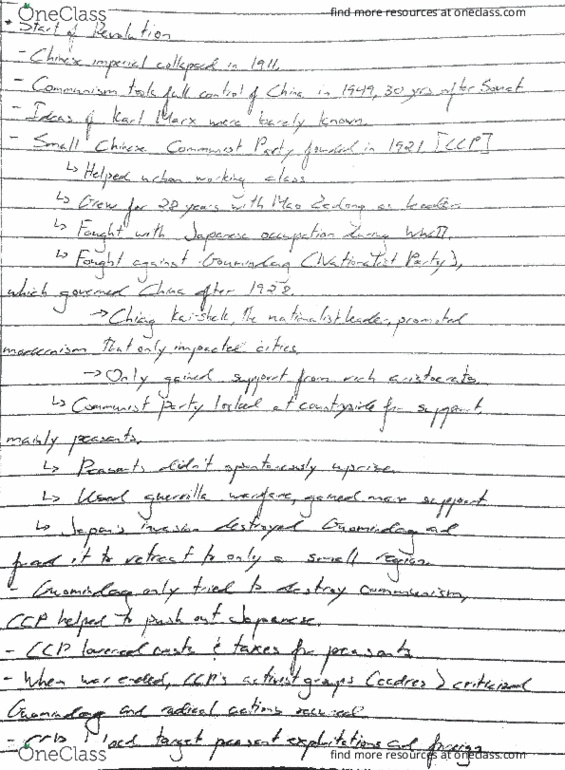 OneClass
find more resources at oneclass.com
• Start of Revolution
- Chinese imperial collapsed in 1911.
- Communism took full control of China in 1949, 30 yrs after Soviet
- Ideas of Karl Marx were barely known.
- Small Chinese Communist Party founded in 1921 [CCP]
↳ Helped urban working class
↳ Grew for 28 years with Mao Zedong as leader
↳ Fought with Japanese occupation during WWII.
↳ Fought against Goumindang (Nationalist Party),
which governed China after 1928.
→ Chiang Kai-shek, the nationalist leader, promoted
modernism that only impacted cities.
→ Only gained support from rich aristocrats.
↳ Communist party looked at countryside for support,
mainly peasants.
↳ Peasants didn't spontaneously uprise.
↳ Used guerrilla warfare, gained more support
↳ Japan's invasion destroyed Guomindag and
forced it to retreat to only a small region.
- Guomindag only tried to destroy communism,
CCP helped to push out Japanese.
- CCP lowered costs & taxes for peasants
- When war ended, CCP's activist groups (cadres) criticized
Guomindag and radical actions
- CCP target peasant exploitations and foreign
OneClass
find more resources at oneclass.com